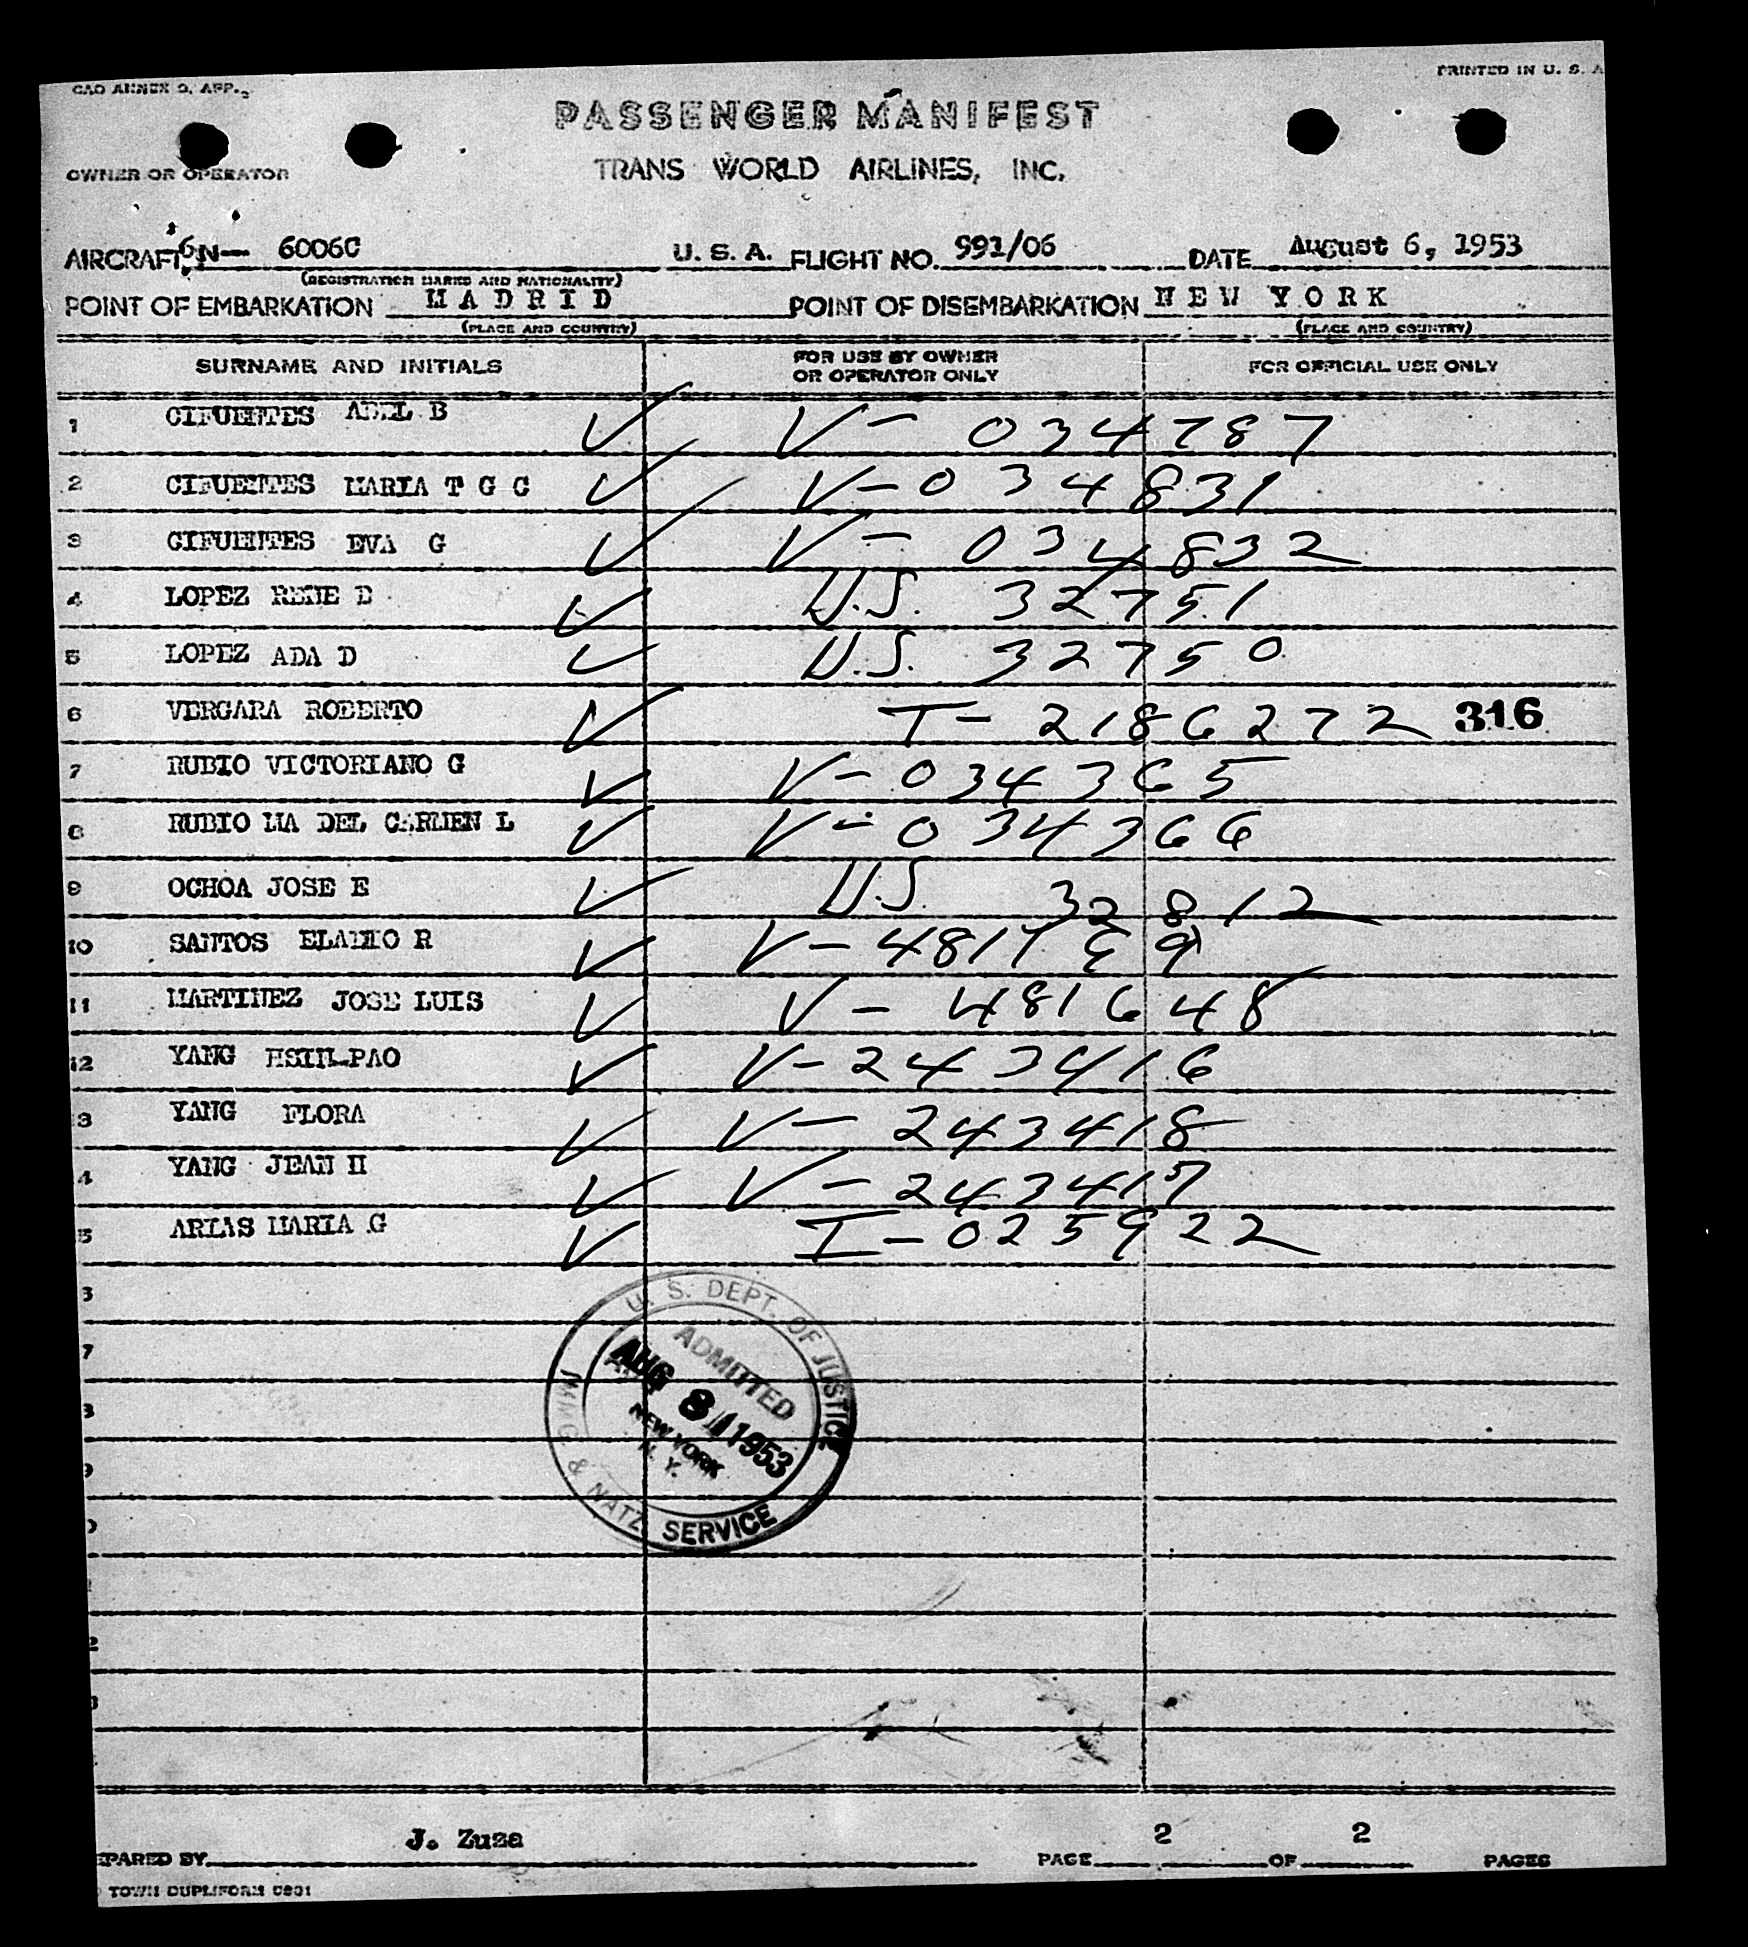 CAO ANNEX 9, APP. 2
PRINTED IN U. S. A
PASSENGER MANIFEST
OWNER OR OPERATOR
TRANS WORLD AIRLINES, INC.
AIRCRAFT N— 6006C U. S. A. FLIGHT NO. 991/06 DATE August 6, 1953
(REGISTRATION MARKS AND NATIONALITY)
POINT OF EMBARKATION MADRID POINT OF DISEMBARKATION NEW YORK
(PLACE AND COUNTRY) (PLACE AND COUNTRY)
SURNAME AND INITIALS FOR USE BY OWNER OR OPERATOR ONLY FOR OFFICIAL USE ONLY
1 CIFUENTES ABEL B ✓ V-034787
2 CIFUENTES MARIA T G G ✓ V-034831
3 CIFUENTES EVA G ✓ V-034832
4 LOPEZ RENE D ✓ U.S. 32751
5 LOPEZ ADA D ✓ U.S. 32750
6 VERGARA ROBERTO ✓ T-2186272 316
7 RUBIO VICTORIANO G ✓ V-034365
8 RUBIO MA DEL CARMEN L ✓ V-034366
9 OCHOA JOSE E ✓ U.S. 32812
10 SANTOS ELADIO R ✓
11 MARTINEZ JOSE LUIS ✓ V-481648
12 YANG HSIN-PAO ✓ V-243416
3 YANG FLORA ✓ V-243418
4 YANG JEAN H ✓ V-243417
5 ARIAS MARIA G ✓ I-025922
U. S. DEPT. OF JUSTICE
ADMITTED
AUG 8 1953
NEW YORK
N. Y.
IMMIG & NATZ SERVICE
J. Zuza
EPARED BY PAGE 2 OF 2 PAGES
TOWN DUPLIFORM